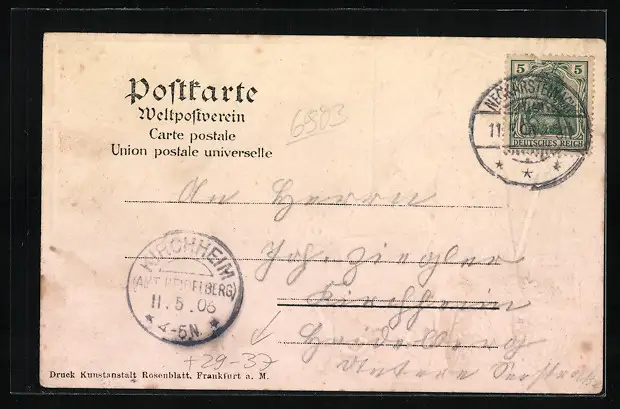 Postkarte
Weltpostverein
Carte postale
Union postale universelle
6903
5 5
DEUTSCHES REICH
NECKARSTEINACH
11. 5. 06
An Herrn
Joh. Ziegler
Kirchheim
Heidelberg
Untere
KIRCHHEIM
(AMT HEIDELBERG)
11.5.06
4-5N.
+29-37
Druck Kunstanstalt Rosenblatt, Frankfurt a. M.